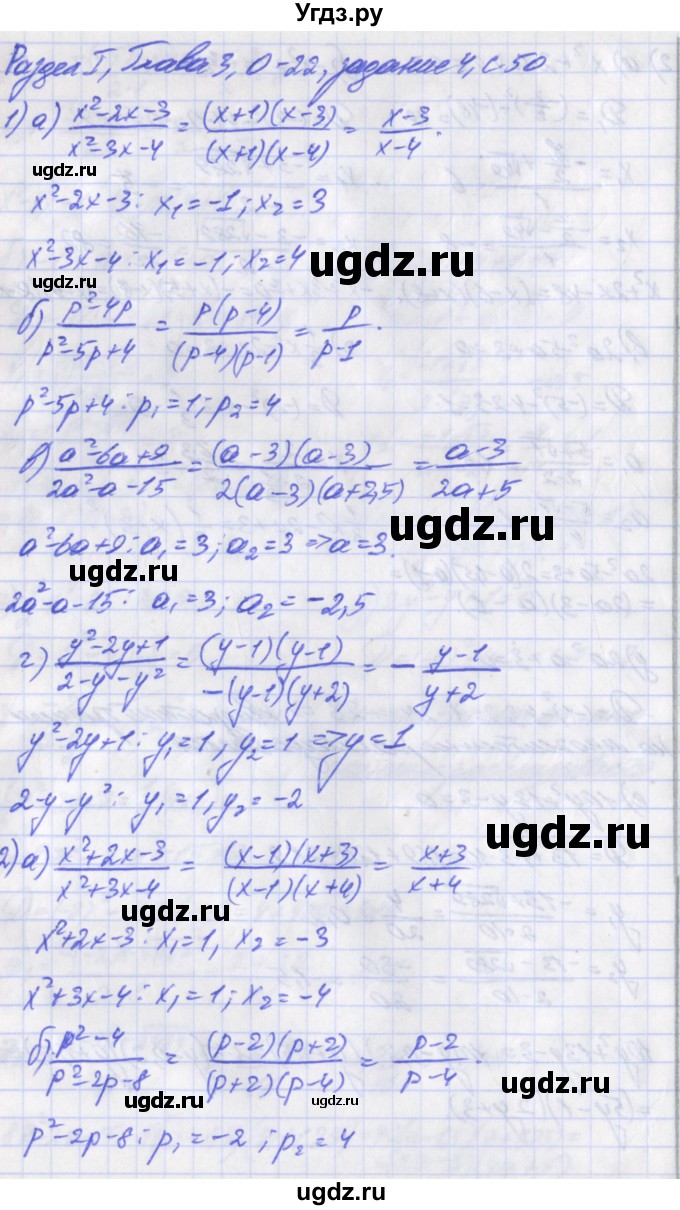 Угдз.ру
Раздел I, Глава 3, О-22, задание 4, с.50
ugdz.ru
1) а) (x²-2x-3)/(x²-3x-4) = ((x+1)(x-3))/((x+1)(x-4)) = (x-3)/(x-4).
ugdz.ru
x²-2x-3: x₁=-1; x₂=3
x²-3x-4: x₁=-1; x₂=4
ugdz.ru
ugdz.ru
б) (p²-4p)/(p²-5p+4) = (p(p-4))/((p-4)(p-1)) = p/(p-1).
p²-5p+4: p₁=1; p₂=4
в) (a²-6a+9)/(2a²-a-15) = ((a-3)(a-3))/(2(a-3)(a+2,5)) = (a-3)/(2a+5)
ugdz.ru
a²-6a+9: a₁=3; a₂=3 => a=3.
ugdz.ru
2a²-a-15: a₁=3; a₂=-2,5
г) (y²-2y+1)/(2-y-y²) = ((y-1)(y-1))/(-(y-1)(y+2)) = -(y-1)/(y+2)
y²-2y+1: y₁=1, y₂=1 => y=1
2-y-y²: y₁=1, y₂=-2
ugdz.ru
2) а) (x²+2x-3)/(x²+3x-4) = ((x-1)(x+3))/((x-1)(x+4)) = (x+3)/(x+4)
ugdz.ru
x²+2x-3: x₁=1, x₂=-3
x²+3x-4: x₁=1; x₂=-4
б) (p²-4)/(p²-2p-8) = ((p-2)(p+2))/((p+2)(p-4)) = (p-2)/(p-4).
ugdz.ru
ugdz.ru
p²-2p-8: p₁=-2; p₂=4
ugdz.ru